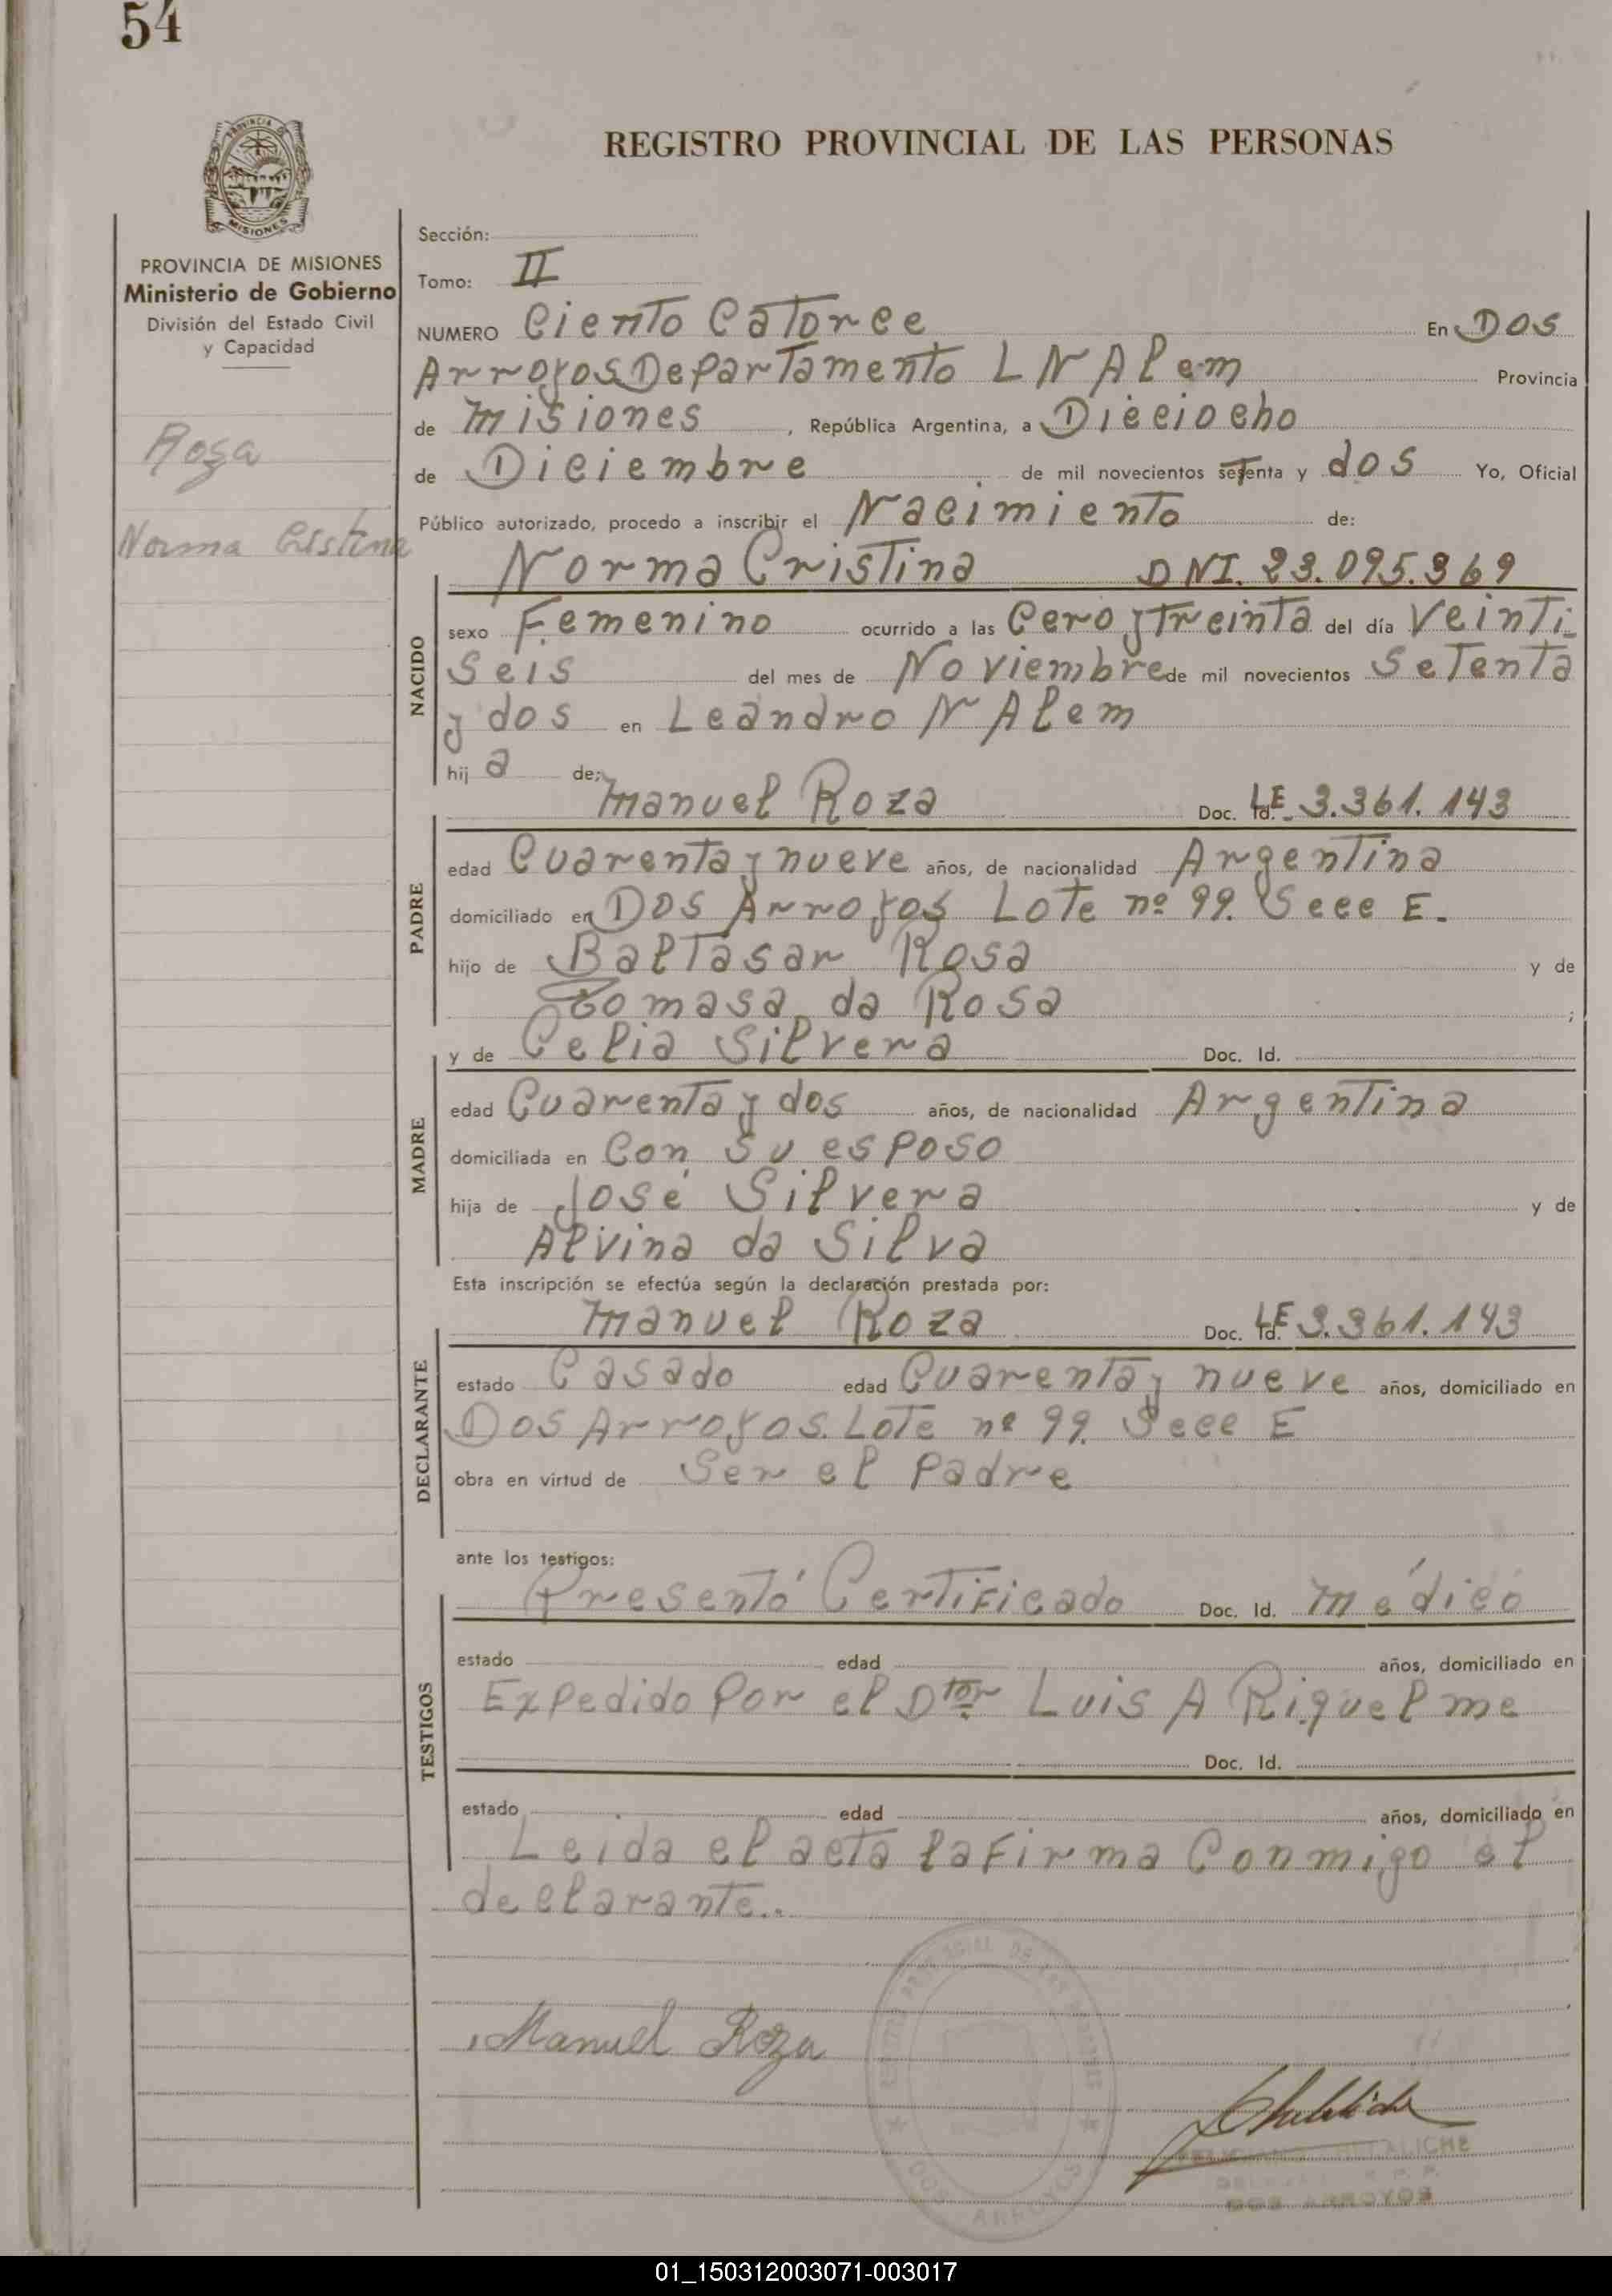 54
REGISTRO PROVINCIAL DE LAS PERSONAS
MISIONES
PROVINCIA DE MISIONES
Ministerio de Gobierno
División del Estado Civil
y Capacidad
Roza
Norma Cristina
Sección:
Tomo: II
NUMERO Ciento Catorce En Dos
Arroyos Departamento L N Alem Provincia
de Misiones, República Argentina, a Dieciocho
de Diciembre de mil novecientos setenta y dos Yo, Oficial
Público autorizado, procedo a inscribir el Nacimiento de:
Norma Cristina DNI. 23.095.369
NACIDO
sexo Femenino ocurrido a las Cero y treinta del día Veinti-
Seis del mes de Noviembre de mil novecientos Setenta
y dos en Leandro N Alem
hij a de:
Manuel Roza Doc. Id. LE 3.361.143
PADRE
edad Cuarenta y nueve años, de nacionalidad Argentina
domiciliado en Dos Arroyos Lote nº 99. Secc E.
hijo de Baltasar Rosa y de
Tomasa da Rosa ;
y de Celia Silvera Doc. Id.
MADRE
edad Cuarenta y dos años, de nacionalidad Argentina
domiciliada en Con su esposo
hija de José Silvera y de
Alvina da Silva
Esta inscripción se efectúa según la declaración prestada por:
Manuel Roza Doc. Id. LE 3.361.143
DECLARANTE
estado Casado edad Cuarenta y nueve años, domiciliado en
Dos Arroyos. Lote nº 99. Secc E
obra en virtud de Ser el Padre
ante los testigos:
Presentó Certificado Doc. Id. médico
TESTIGOS
estado edad años, domiciliado en
Expedido Por el Dtor Luis A Riquelme
Doc. Id.
estado edad años, domiciliado en
Leida el acta la Firma Conmigo el
declarante..
Manuel Roza
DOS ARROYOS
DOS ARROYOS
01_150312003071-003017